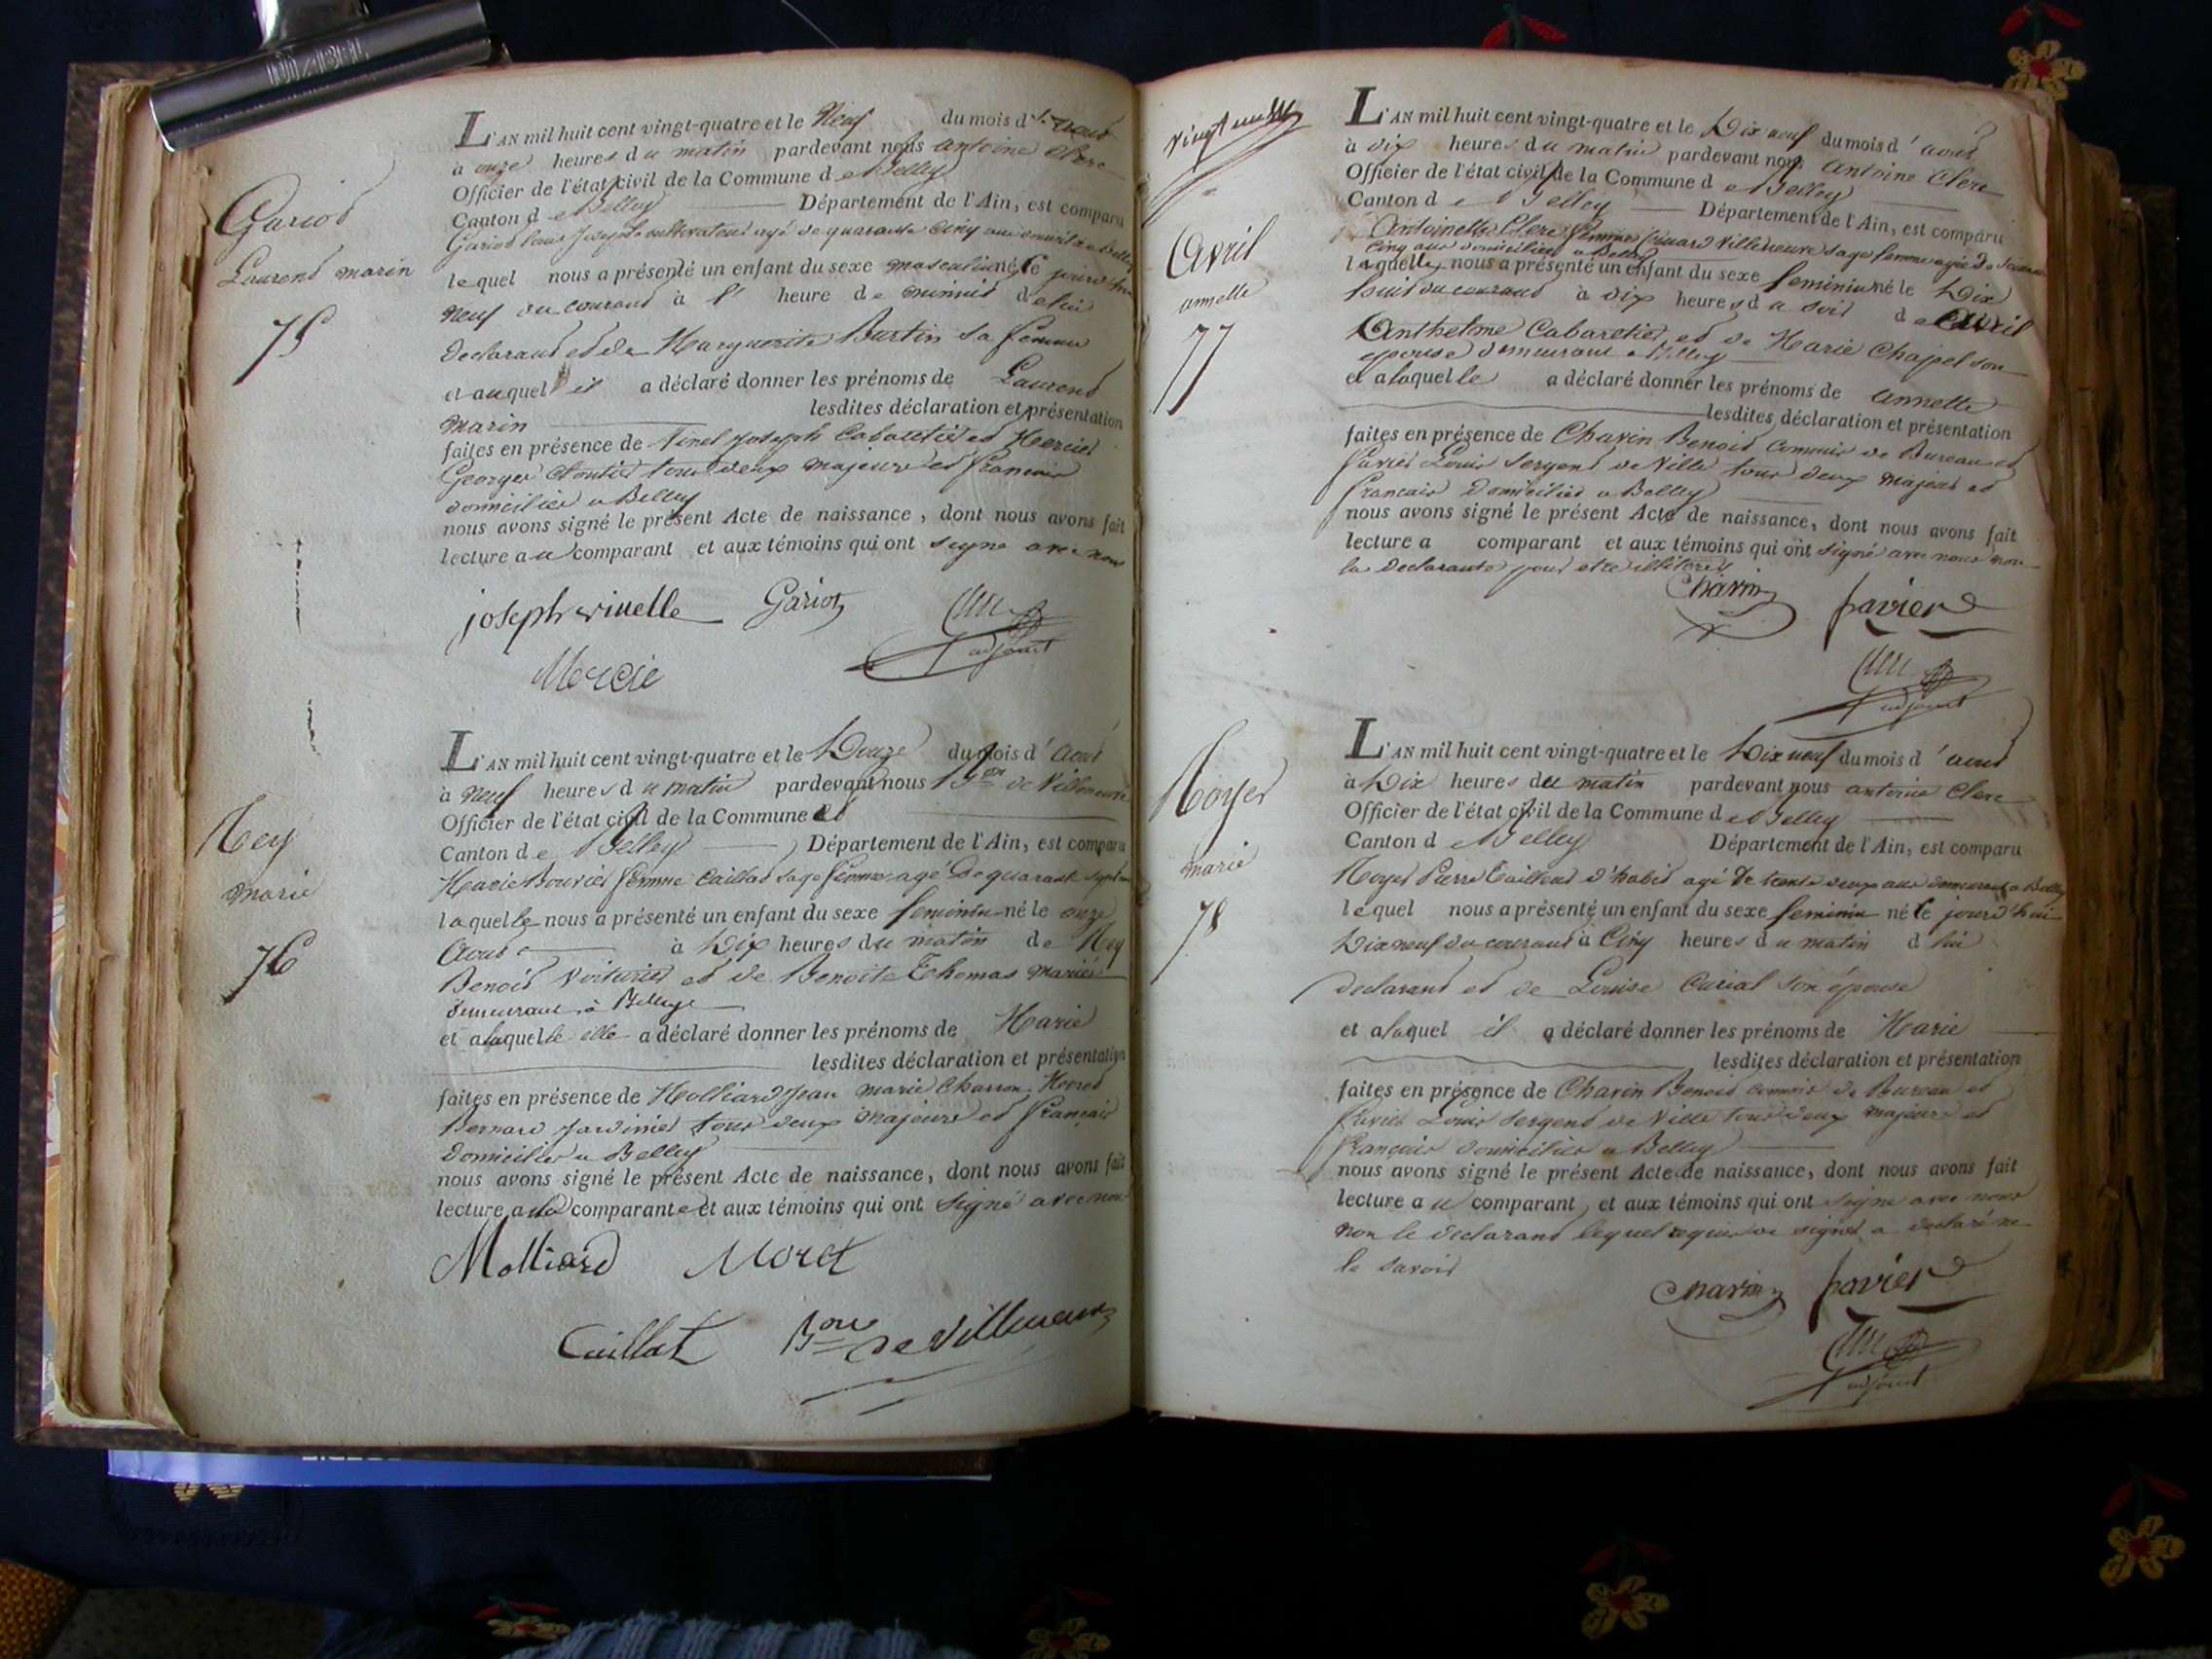 Gariod
Laurend marin
75
L'AN mil huit cent vingt-quatre et le Neuf du mois d'aout
à onze heures du matin pardevant nous antoine Clerc
Officier de l'état civil de la Commune de Belley
Canton de Belley Département de l'Ain, est comparu
Gariod Joseph cultivateur agé de quarante cinq ans domicilié a Belley
lequel nous a présenté un enfant du sexe masculin né le jourd'hui
Neuf du courant à l' heure de minuit de lui
declarant et de Marguerite Burtin sa femme
et auquel il a déclaré donner les prénoms de Laurend
marin lesdites déclaration et présentation
faites en présence de Vinel Joseph Cabaretier et Mercier
George tous deux majeurs et français
domicilies a Belley
nous avons signé le présent Acte de naissance, dont nous avons fait
lecture au comparant et aux témoins qui ont signé avec nous
joseph vinelle Gariot
adjoint
Mercie
Ney
marie
76
L'AN mil huit cent vingt-quatre et le Douze du mois d'Aout
à Neuf heures du matin pardevant nous Bon de Villeneuve
Officier de l'état civil de la Commune et
Canton de Belley Département de l'Ain, est comparu
Marie Bouvier femme Caillat sage femme agé de quarante sept ans
laquelle nous a présenté un enfant du sexe feminin né le onze
Aout à Dix heures du matin de Ney
Benoit Voiturier et de Benoite Thomas mariés
demeurant à Belley
et alaquelle elle a déclaré donner les prénoms de Marie
lesdites déclaration et présentation
faites en présence de Molliard Jean marie Charron, Moret
Bernard Jardinier tous deux majeurs et français
domicilies a Belley
nous avons signé le présent Acte de naissance, dont nous avons fait
lecture a la comparante et aux témoins qui ont signé avec nous
Molliard Moret
Caillat Bon de Villeneuve
Avril
annette
77
L'AN mil huit cent vingt-quatre et le Dix neuf du mois d'aout
à dix heures du matin pardevant nous Antoine Clerc
Officier de l'état civil de la Commune de Belley
Canton de Belley Département de l'Ain, est comparu
Antoinette Clerc femme Villeneuve sage femme agée de
cinq ans domiciliée a Belley
laquelle nous a présenté un enfant du sexe feminin né le Dix
huit du courant à dix heures du soir de Avril
Anthelme Cabaretier et de Marie Chapel son
epouse demeurant a Belley
et alaquelle a déclaré donner les prénoms de annette
lesdites déclaration et présentation
faites en présence de Chavin Benoit Commis de Bureau et
Favier Louis Sergent de Ville tous deux majeurs et
francais Domicilies a Belley
nous avons signé le présent Acte de naissance, dont nous avons fait
lecture a comparant et aux témoins qui ont signé avec nous non
la declarante pour etre
Chavin favier
adjoint
Royer
marie
78
L'AN mil huit cent vingt-quatre et le Dix neuf du mois d'aout
à Dix heures du matin pardevant nous antoine Clerc
Officier de l'état civil de la Commune de Belley
Canton de Belley Département de l'Ain, est comparu
Royer Pierre Tailleur d'habit agé de trente deux ans demeurant a Belley
lequel nous a présenté un enfant du sexe feminin né le jourd'hui
Dix neuf du courant à Cinq heures du matin de lui
declarant et de Louise Curial son épouse
et alaquel il a déclaré donner les prénoms de Marie
lesdites déclaration et présentation
faites en présence de Chavin Benoit commis de Bureau et
favier Louis Sergent de Ville tous deux majeurs et
français domicilies a Belley
nous avons signé le présent Acte de naissance, dont nous avons fait
lecture au comparant, et aux témoins qui ont signé avec nous
non le declarant lequel requis de signer a declaré ne
le savoir
Chavin favier
adjoint